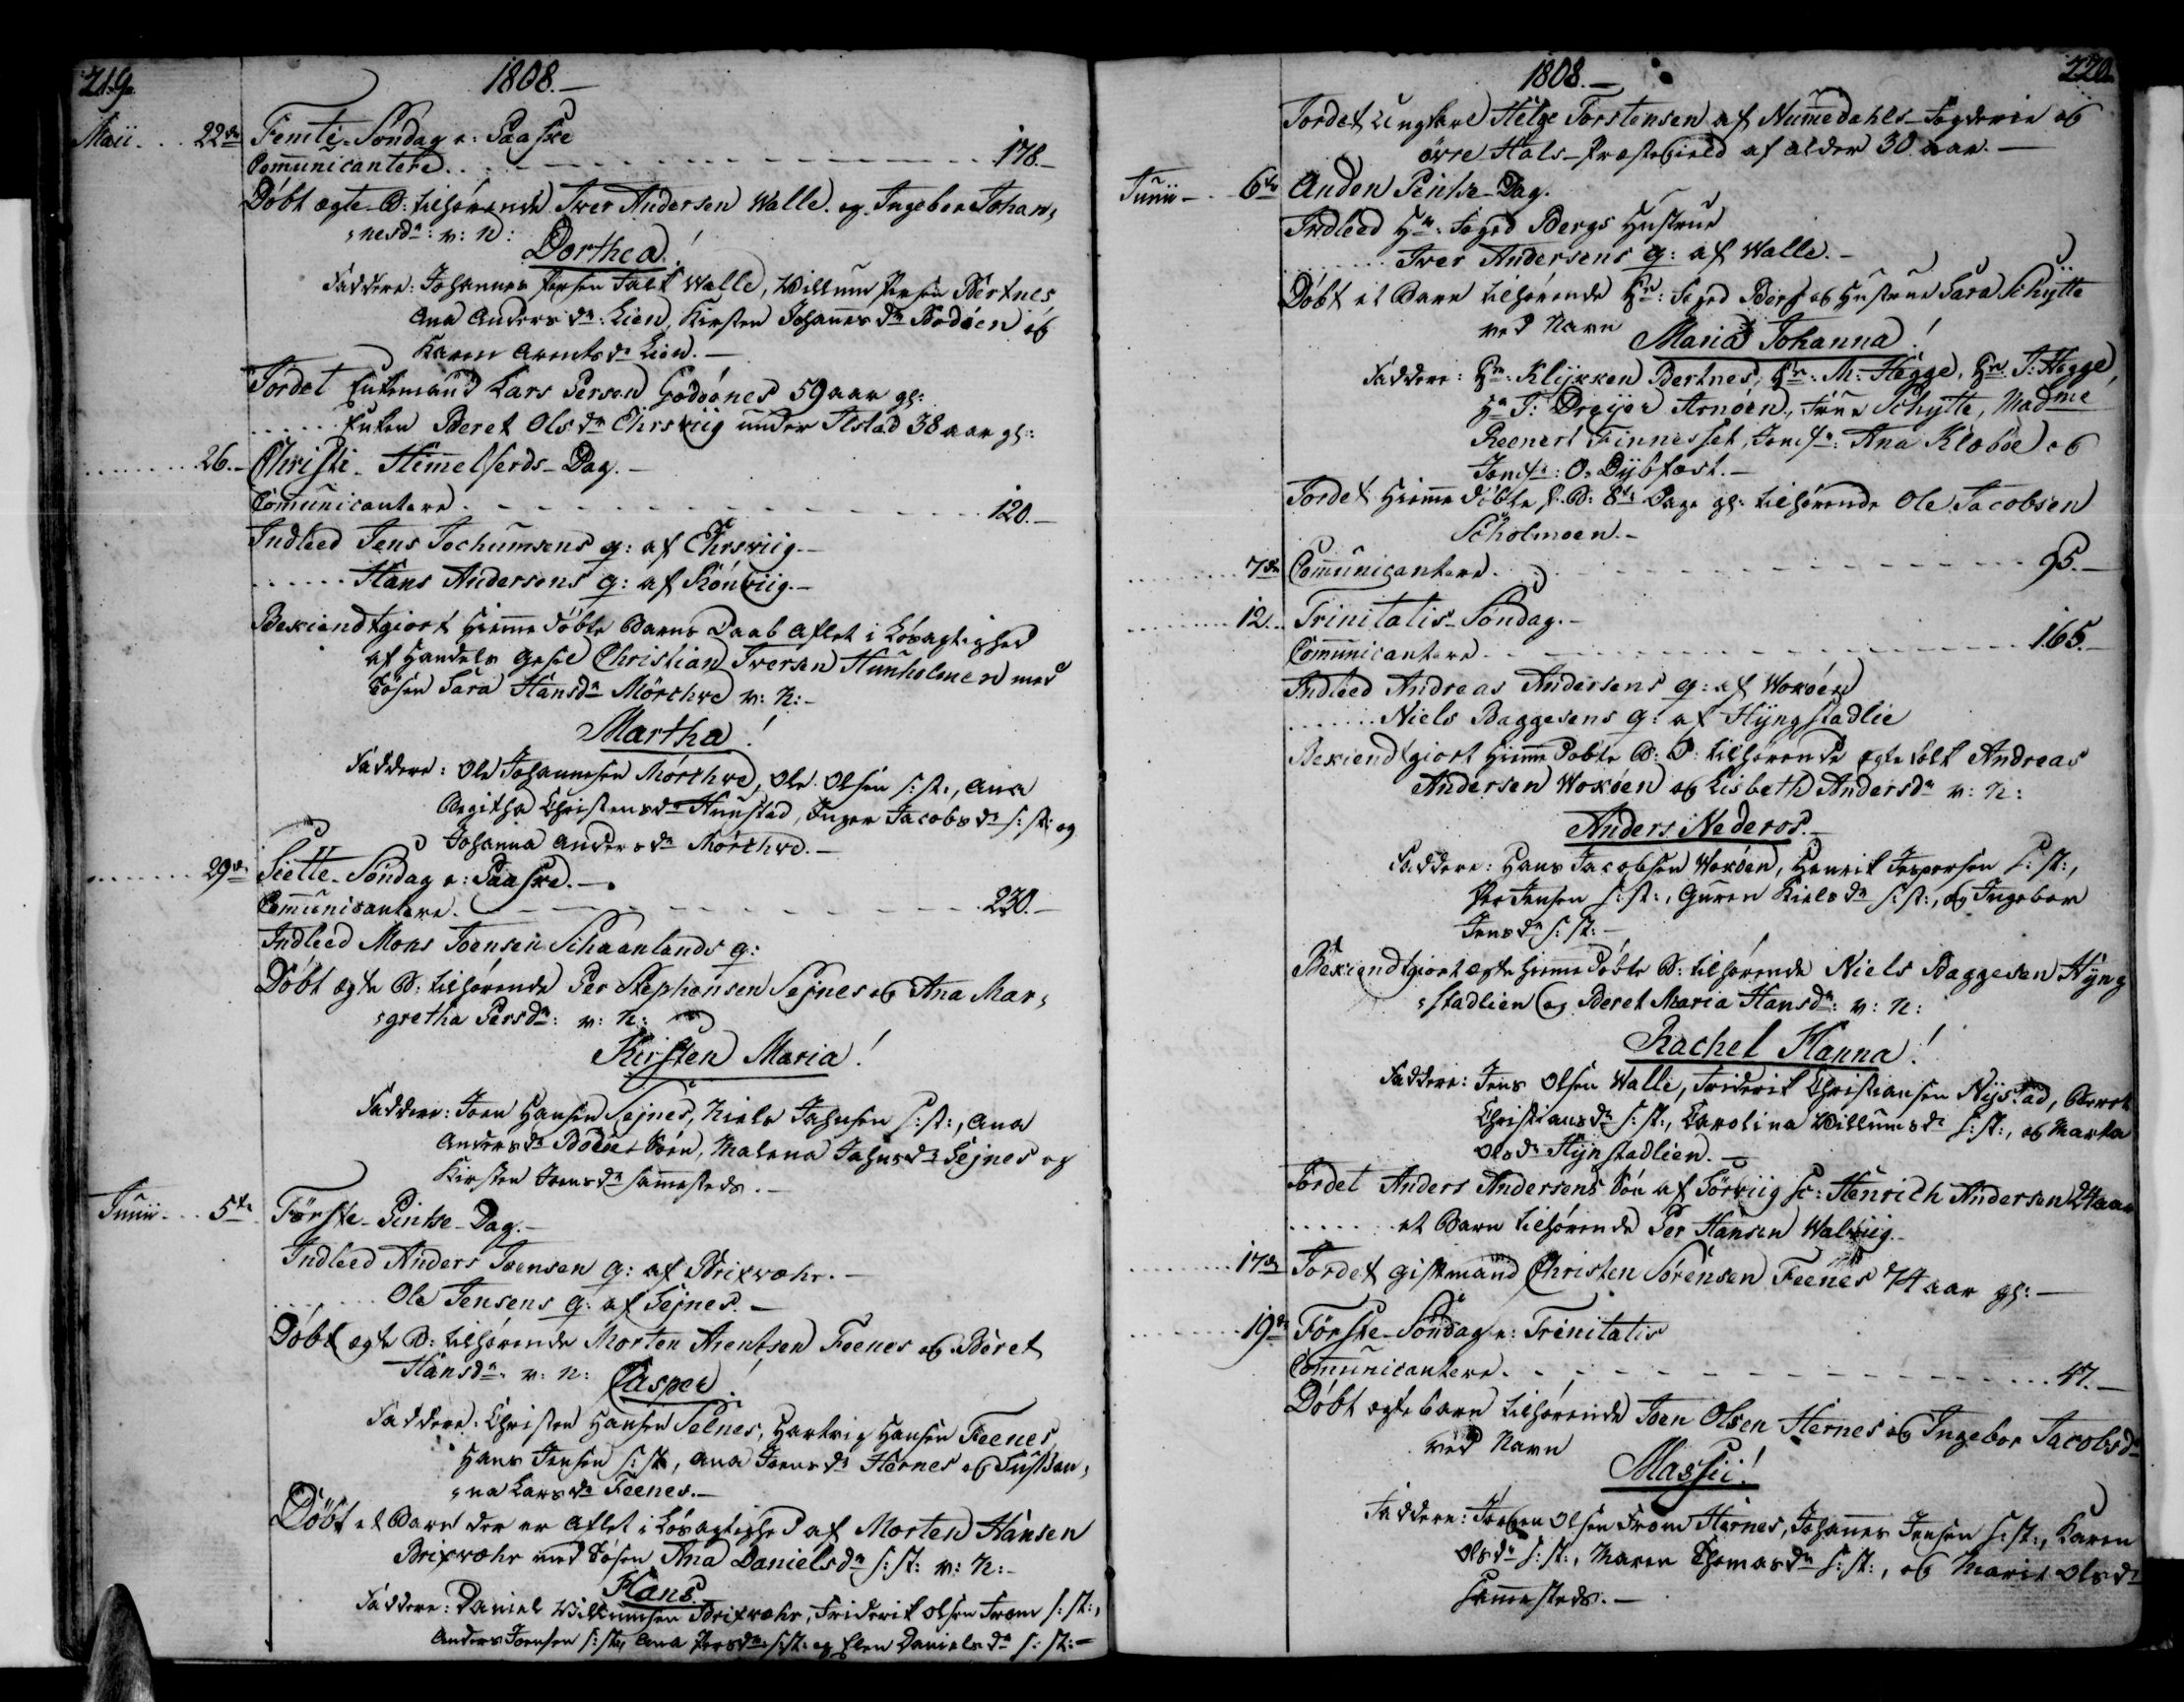 219.
1808.-
Maii 22de Femte-Søndag e: Paaske
Communicantere 178.-
Døbt ægte B: tilhørende Iver Andersen Walle og Ingebor Johan,
,nesdr: v: N:
Dorthea!
Faddere: Johannes Persen Walle, Willum Persen Bertnes
Ana Andersdr Lien, Kirsten Johanesdr Bodøen og
Karen Arentsdr Lien.-
Jordet Enkemand Lars Persen Godøønes 59 aar gl:
Enken Beret Olsdr Ehrsviig under Ilstad 38 aar gl:
26.- Christi-Himmelferds-Dag.-
Comunicantere 120.-
Indleed Jens Jochumsens q: af Ehrsviig.-
Hans Andersens q: af Kønviig.-
Bexiendtgiort Hiemmedøbte Barns Daab Aflet i Løsagtighed
af Handels Gesel Christian Iversen Hunholmen med
Tøsen Sara Hansdr Mørchve v: N:-
Martha!
Faddere: Ole Johannesen Mørchve, Ole Olsen s: st:, Ana
Birgitha Christensdr Hunstad, Inger Jacobsdr s: st: og
Johanna Andersdr Mørchve.-
29de Siette-Søndag e: Paaske.-
Communicantere. 230.-
Indleed Mons Joensen Schaanlands q:
Døbt ægte B: tilhørende Per Stephensen Sejnes og Ana Mar,
,gretha Persdr: v: N:
Kirsten Maria!
Faddere: Joen Hansen Sejnes, Niels Jahnsen s: st:, Ana
Andersdr Bodøe-Søen, Malena Jahnsdr Sejnes og
Kirsten Joensdr sammesteds.-
Junii 5te Første-Pintse-Dag.-
Indleed Anders Joensen q: af Brixvæhr.-
Ole Jensens q: af Sejnes.-
Døbt ægte B: tilhørende Morten Arentsen Feenes og Beret
Hansdr. v: N: Casper!
Faddere: Christen Hansen Selnes, Hartvig Hansen Feenes,
Hans Jensen s: st:, Ana Joensdr Hernes og Susan,
,na Larsdr Feenes.-
Døbt et Barn der er Aflet i Løsagtighed af Morten Hansen
Brixvæhr med Tøsen Ana Danielsdr s: st: v: N:-
Hans.
Faddere: Daniel Willumsen Brixvæhr, Friderik Olsen From s: st:,
Anders Joensen s: st:, Ana Persdr s: st: og Elen Danielsdr s: st:-
1808.-
220.
Jordet Ungkarl Helge Torstensen af Nummedahls-Fogderie og
øvre Hals-Præstegield af alder 30 aar.-
Junii- 6te Anden Pintse-Dag.
Indleed Hr: Foged Bergs Hustrue
Iver Andersens q: af Walle.-
Døbt et Barn tilhørende Hr: Foged Berg og Hustrue Sara Schytte
ved Navn Maria Johanna!
Faddere: Hr: Klykken Bertnes, Hr: M: Hegge, Hr. J: Hegge,
Hr J: Dreyer Arnøen, Frue Schytte, Madme
Reenert Finnesset, Jomfr: Ana Klæboe og
Jomfr: O. Dybfest.-
Jordet Hiemmedøbte p. B: 8te Dage gl: tilhørende Ole Jacobsen
Scholmoen.-
7de Communicantere. 95.-
12. Trinitatis-Søndag.-
Communicantere 165.-
Indleed Andreas Andersens q: af Woxøen
Niels Baggesens q: af Hyngstadlie
Bexiendtgiort Hiemmedøbte B: D: tilhørende ægtefolk Andreas
Andersen Woxøen og Lisbeth Andersdr v: N:
Anders Nederos.-
Faddere: Hans Jacobsen Woxøen, Henrik Jespersen s: st:,
Per Jensen s: st:, Guren Nielsdr s: st:, og Ingebor
Jensdr s: st:-
Bexiendtgiort ægte Hiemmedøbte B: tilhørende Niels Baggesen Hyng
,stadlien og Beret Maria Hansdr: v: N:
Rachel Hanna!
Faddere: Jens Olsen Walle, Friderik Christiansen Nystad, Beret
Christiansdr s: st:, Carolina Willumsdr s: st:, og Marta
Olsdr Hynstadlien.-
Jordet Anders Andersens Søn af Sørviig sc: Henrich Andersen 24 aar
et Barn tilhørende Per Hansen Walviig.
17de Jordet Giftmand Christen Sørensen Feenes 74 aar gl:-
19de Første-Søndag e: Trinitatis
Communicantere. 47.-
Døbt ægte Barn tilhørende Joen Olsen Hernes og Ingebor Jacobsdr
ved Navn
Massii!
Faddere: Joen Olsen From Hernes, Johannes Jensen s: st:, Karen
Olsdr s: st:, Maren Thomasdr s: st:, og Marit Olsdr
sammesteds.-